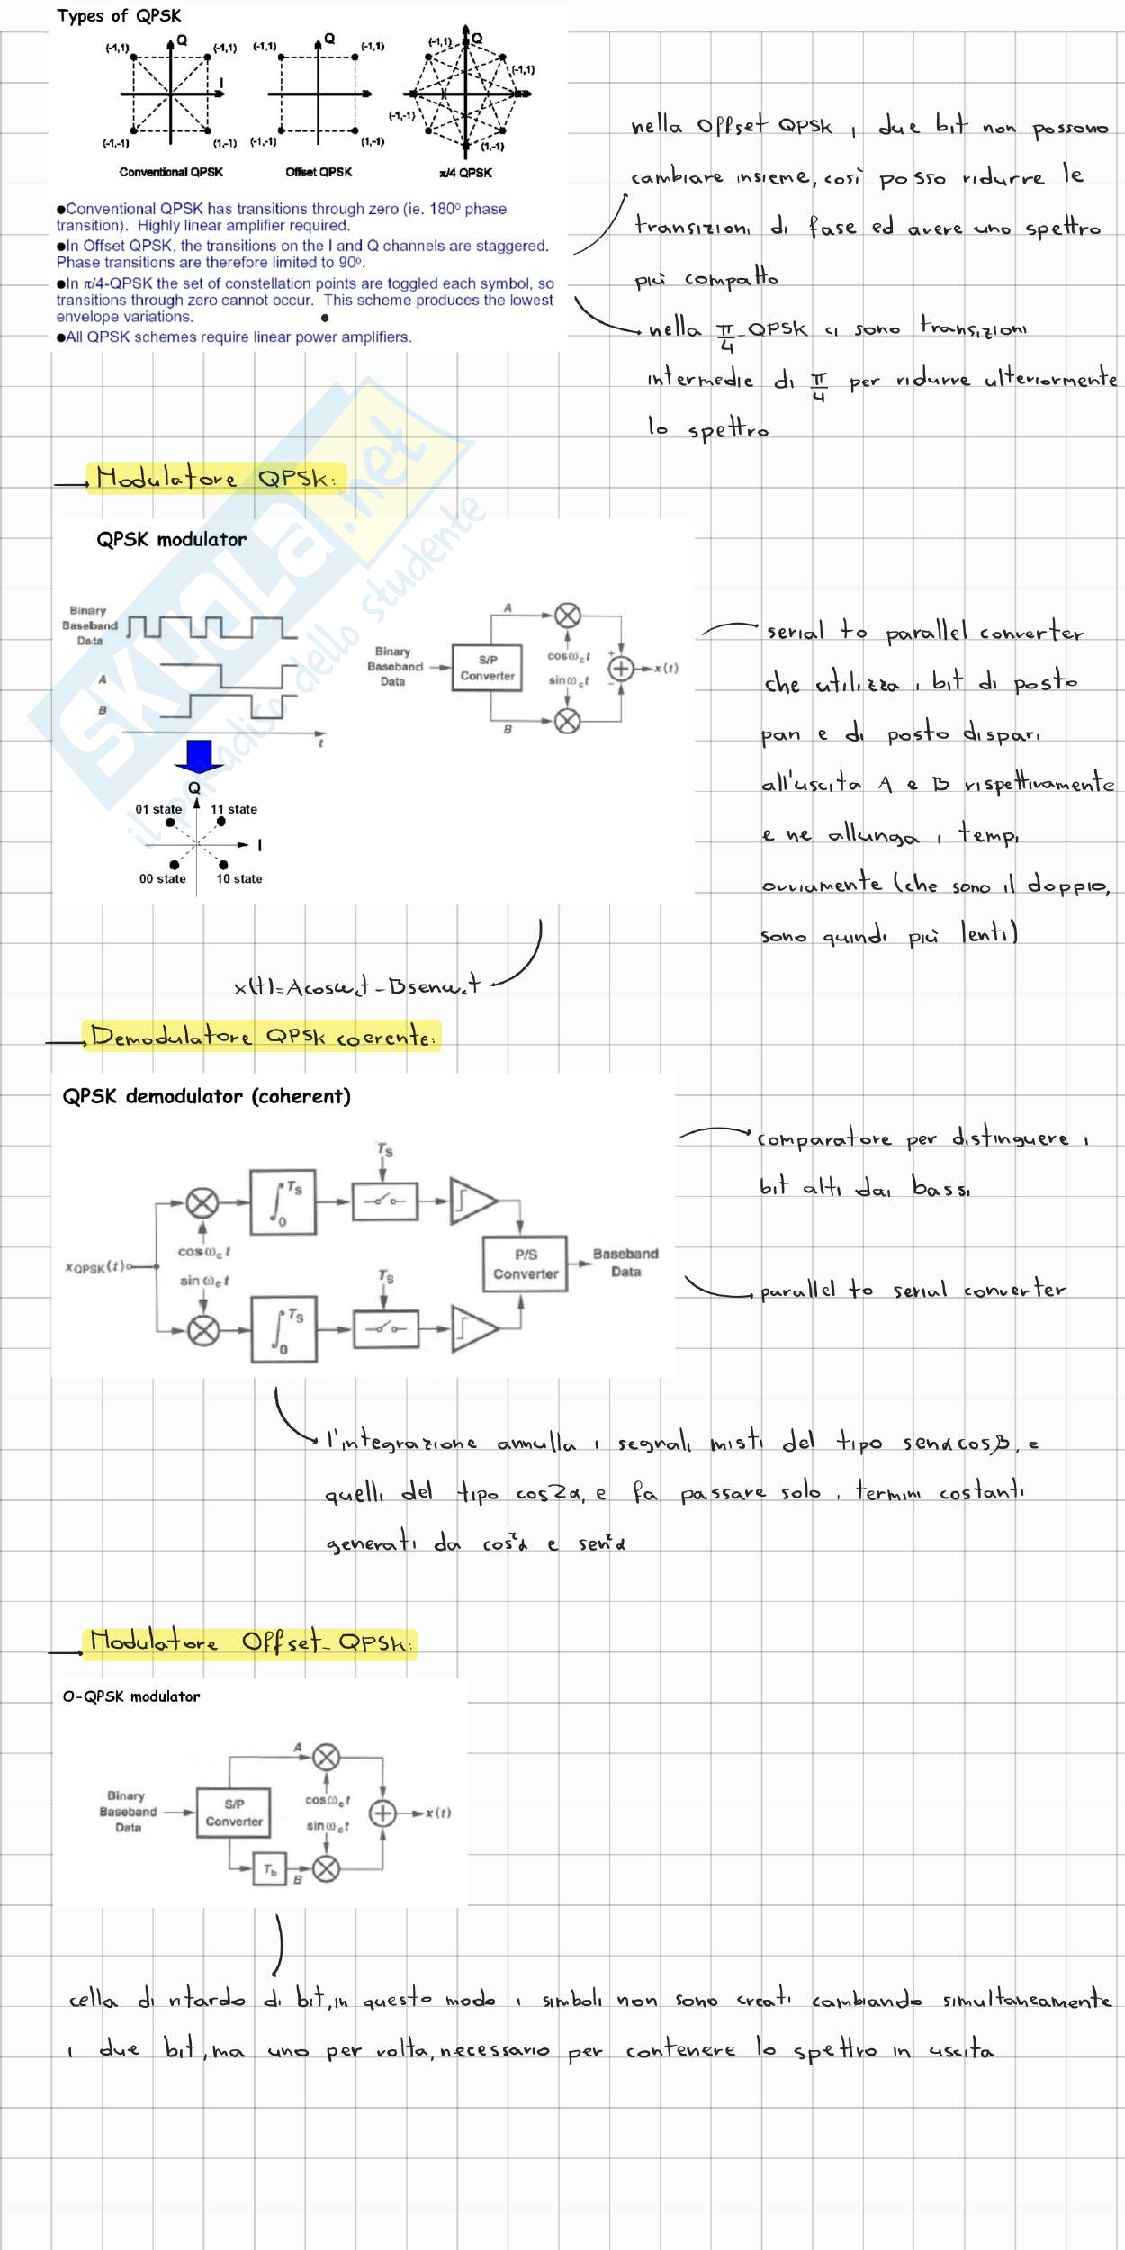 Types of QPSK
(-1,1) Q (-1,1) (-1,1) Q (-1,1) (-1,1) Q
I (-1,1)
(-1,-1)
(-1,-1) (1,-1) (-1,-1) (1,-1) (1,-1)
Conventional QPSK Offset QPSK π/4 QPSK
●Conventional QPSK has transitions through zero (ie. 180º phase
transition). Highly linear amplifier required.
●In Offset QPSK, the transitions on the I and Q channels are staggered.
Phase transitions are therefore limited to 90º.
●In π/4-QPSK the set of constellation points are toggled each symbol, so
transitions through zero cannot occur. This scheme produces the lowest
envelope variations.
●All QPSK schemes require linear power amplifiers.
nella Offset QPSK i due bit non possono
cambiare insieme, così posso ridurre le
transizioni di fase ed avere uno spettro
più compatto
nella π/4 QPSK ci sono transizioni
intermedie di π/4 per ridurre ulteriormente
lo spettro
Modulatore QPSK:
QPSK modulator
Binary
Baseband
Data
A
B
t
Q
01 state 11 state
I
00 state 10 state
A
Binary
Baseband
Data
S/P
Converter
cosω_c t
sinω_c t
+
−
x(t)
B
serial to parallel converter
che utilizza i bit di posto
pari e di posto dispari
all'uscita A e B rispettivamente
e ne allunga i tempi
ovviamente (che sono il doppio,
sono quindi più lenti)
x(t)=Acosω_ct-Bsenω_ct
Demodulatore QPSK coerente:
QPSK demodulator (coherent)
T_S
∫_0^T_S
cosω_c t
x_QPSK(t)
sinω_c t
P/S
Converter
Baseband
Data
T_S
∫_0^T_S
comparatore per distinguere i
bit alti dai bassi
parallel to serial converter
l'integrazione annulla i segnali misti del tipo senαcosβ, e
quelli del tipo cos2α, e fa passare solo i termini costanti
generati da cos²α e sen²α
Modulatore Offset-QPSK:
O-QPSK modulator
A
Binary
Baseband
Data
S/P
Converter
cosω_c t
sinω_c t
x(t)
T_b
B
cella di ritardo di bit, in questo modo i simboli non sono creati cambiando simultaneamente
i due bit, ma uno per volta, necessario per contenere lo spettro in uscita
SKUOLA.net
il paradiso dello studente